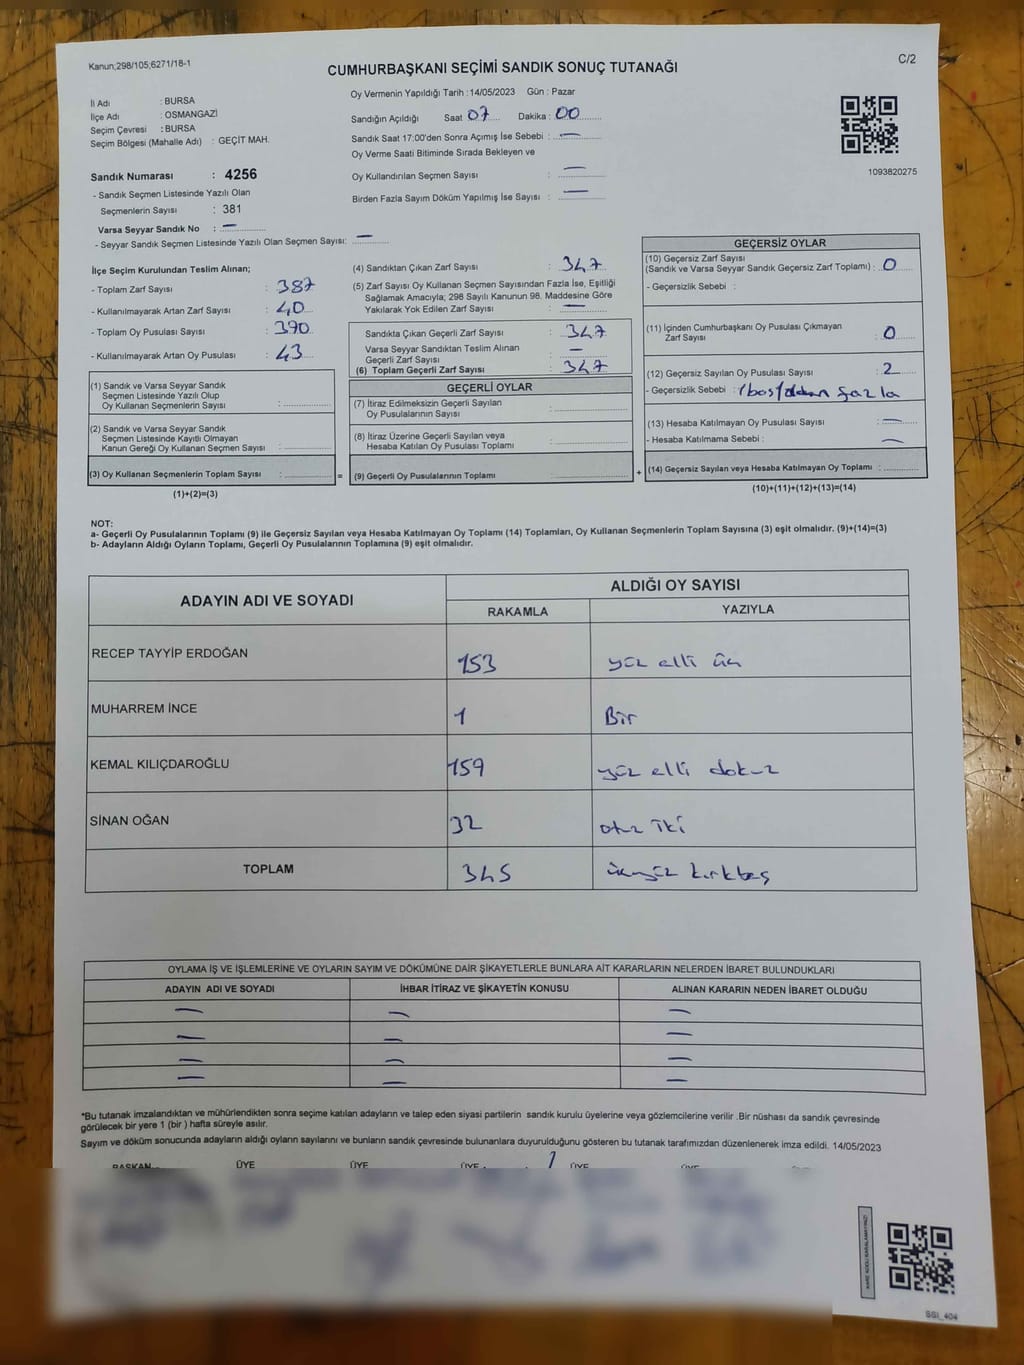 Kanun;298/105;6271/18-1
C/2
CUMHURBAŞKANI SEÇİMİ SANDIK SONUÇ TUTANAĞI
İl Adı : BURSA
İlçe Adı : OSMANGAZİ
Seçim Çevresi : BURSA
Seçim Bölgesi (Mahalle Adı) : GEÇİT MAH.
Sandık Numarası : 4256
- Sandık Seçmen Listesinde Yazılı Olan
Seçmenlerin Sayısı : 381
Varsa Seyyar Sandık No : —
- Seyyar Sandık Seçmen Listesinde Yazılı Olan Seçmen Sayısı: —
Oy Vermenin Yapıldığı Tarih :14/05/2023 Gün : Pazar
Sandığın Açıldığı Saat 07 Dakika : 00
Sandık Saat 17:00'den Sonra Açımış İse Sebebi : —
Oy Verme Saati Bitiminde Sırada Bekleyen ve
Oy Kullandırılan Seçmen Sayısı : —
Birden Fazla Sayım Döküm Yapılmış İse Sayısı : —
1093820275
İlçe Seçim Kurulundan Teslim Alınan;
- Toplam Zarf Sayısı : 387
- Kullanılmayarak Artan Zarf Sayısı : 40
- Toplam Oy Pusulası Sayısı : 390
- Kullanılmayarak Artan Oy Pusulası : 43
(1) Sandık ve Varsa Seyyar Sandık
Seçmen Listesinde Yazılı Olup
Oy Kullanan Seçmenlerin Sayısı :
(2) Sandık ve Varsa Seyyar Sandık
Seçmen Listesinde Kayıtlı Olmayan
Kanun Gereği Oy Kullanan Seçmen Sayısı :
(3) Oy Kullanan Seçmenlerin Toplam Sayısı : =
(1)+(2)=(3)
(4) Sandıktan Çıkan Zarf Sayısı : 347
(5) Zarf Sayısı Oy Kullanan Seçmen Sayısından Fazla İse, Eşitliği
Sağlamak Amacıyla; 298 Sayılı Kanunun 98. Maddesine Göre
Yakılarak Yok Edilen Zarf Sayısı : —
Sandıkta Çıkan Geçerli Zarf Sayısı : 347
Varsa Seyyar Sandıktan Teslim Alınan
Geçerli Zarf Sayısı : —
(6) Toplam Geçerli Zarf Sayısı : 347
GEÇERLİ OYLAR
(7) İtiraz Edilmeksizin Geçerli Sayılan
Oy Pusulalarının Sayısı :
(8) İtiraz Üzerine Geçerli Sayılan veya
Hesaba Katılan Oy Pusulası Toplamı :
(9) Geçerli Oy Pusulalarının Toplamı : +
GEÇERSİZ OYLAR
(10) Geçersiz Zarf Sayısı
(Sandık ve Varsa Seyyar Sandık Geçersiz Zarf Toplamı) : 0
- Geçersizlik Sebebi :
(11) İçinden Cumhurbaşkanı Oy Pusulası Çıkmayan
Zarf Sayısı : 0
(12) Geçersiz Sayılan Oy Pusulası Sayısı : 2
- Geçersizlik Sebebi : 1 boş/ fazla
(13) Hesaba Katılmayan Oy Pusulası Sayısı : —
- Hesaba Katılmama Sebebi : —
(14) Geçersiz Sayılan veya Hesaba Katılmayan Oy Toplamı :
(10)+(11)+(12)+(13)=(14)
NOT:
a- Geçerli Oy Pusulalarının Toplamı (9) ile Geçersiz Sayılan veya Hesaba Katılmayan Oy Toplamı (14) Toplamları, Oy Kullanan Seçmenlerin Toplam Sayısına (3) eşit olmalıdır. (9)+(14)=(3)
b- Adayların Aldığı Oyların Toplamı, Geçerli Oy Pusulalarının Toplamına (9) eşit olmalıdır.
ADAYIN ADI VE SOYADI
ALDIĞI OY SAYISI
RAKAMLA YAZIYLA
RECEP TAYYİP ERDOĞAN 153 yüz elli üç
MUHARREM İNCE 1 Bir
KEMAL KILIÇDAROĞLU 159 yüz elli dokuz
SİNAN OĞAN 32 otuz iki
TOPLAM 345 üçyüz kırkbeş
OYLAMA İŞ VE İŞLEMLERİNE VE OYLARIN SAYIM VE DÖKÜMÜNE DAİR ŞİKAYETLERLE BUNLARA AİT KARARLARIN NELERDEN İBARET BULUNDUKLARI
ADAYIN ADI VE SOYADI İHBAR İTİRAZ VE ŞİKAYETİN KONUSU ALINAN KARARIN NEDEN İBARET OLDUĞU
— — —
— — —
— — —
— — —
*Bu tutanak imzalandıktan ve mühürlendikten sonra seçime katılan adayların ve talep eden siyasi partilerin sandık kurulu üyelerine veya gözlemcilerine verilir .Bir nüshası da sandık çevresinde
görülecek bir yere 1 (bir ) hafta süreyle asılır.
Sayım ve döküm sonucunda adayların aldığı oyların sayılarını ve bunların sandık çevresinde bulunanlara duyurulduğunu gösteren bu tutanak tarafımızdan düzenlenerek imza edildi. 14/05/2023
BAŞKAN ÜYE ÜYE ÜYE ÜYE ÜYE
SSI_404